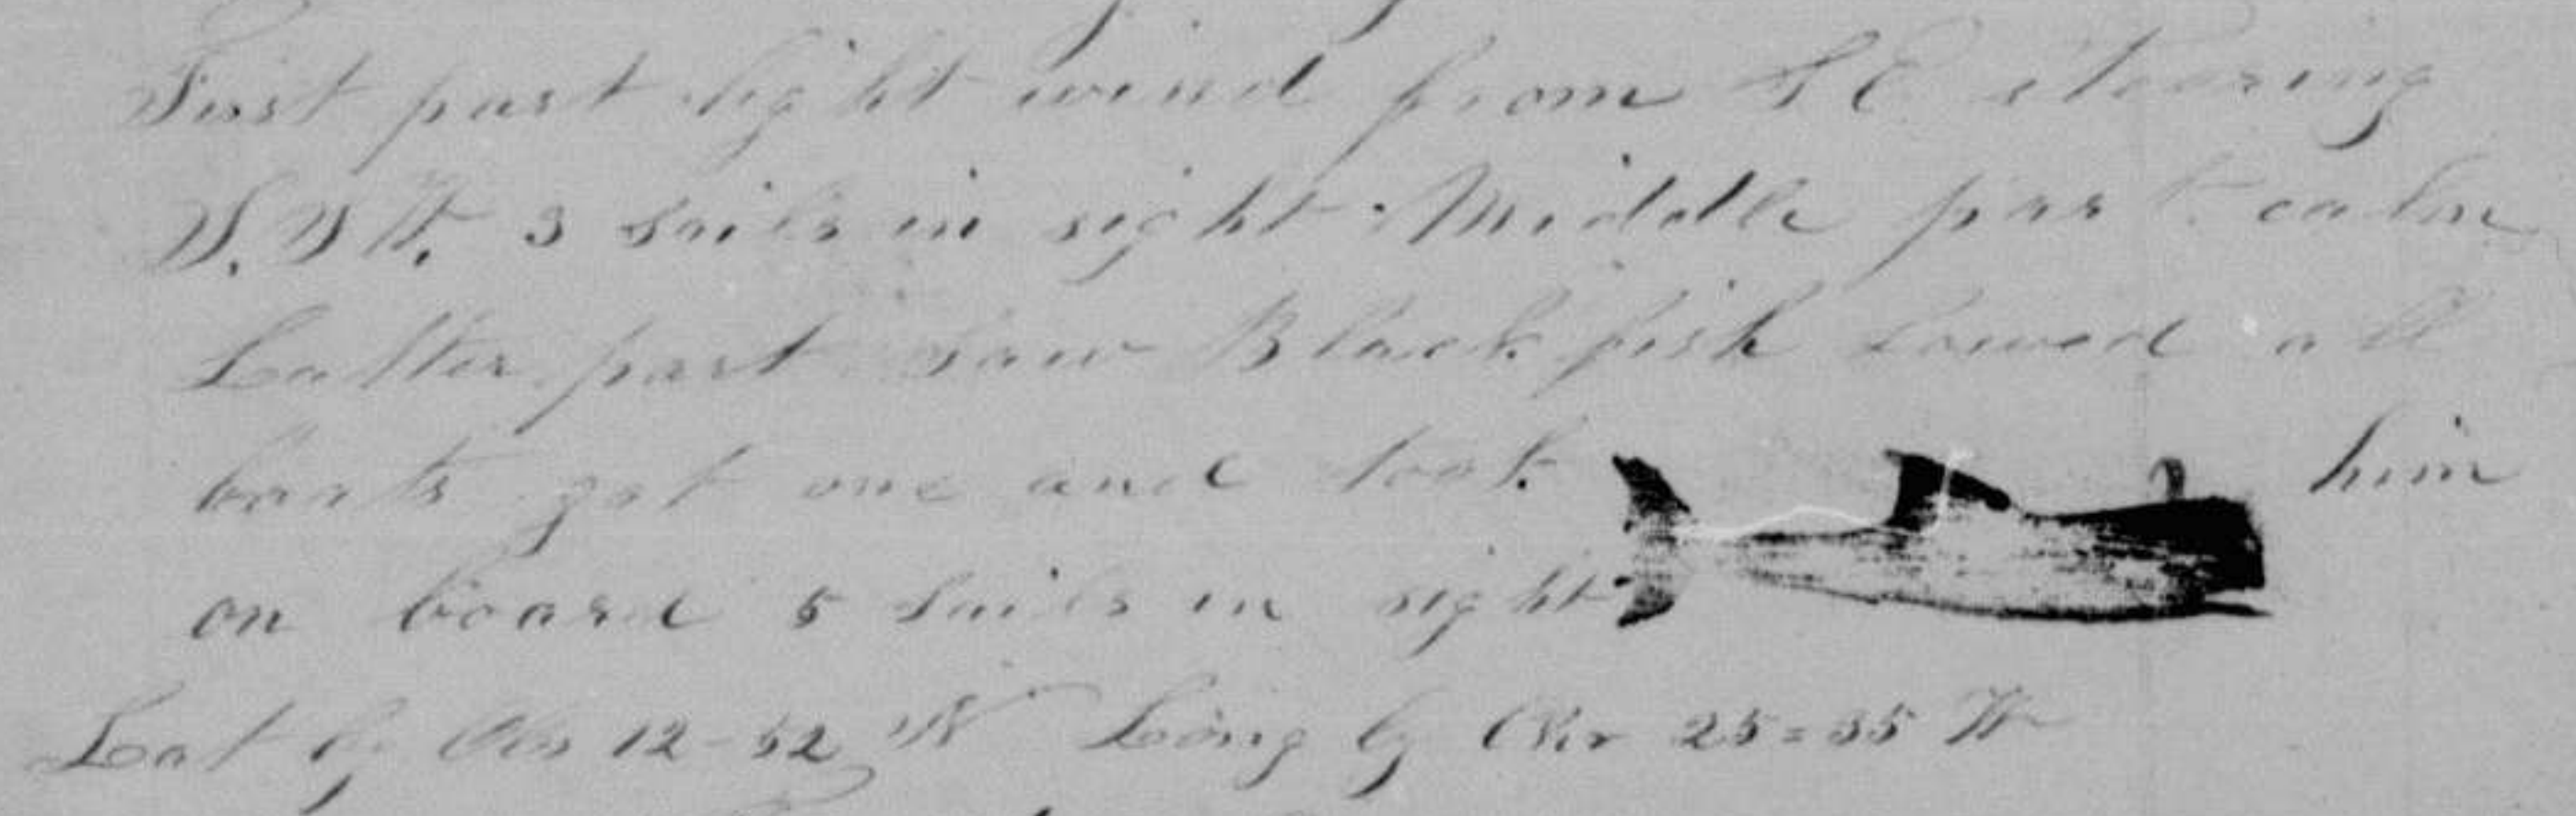 First part light wind from S E stearing
S. S W. 3 Sails in sight Middle part calm
Latter part Saw Black fish Lowed all
boats got one and took him
on board 5 Sails in sight
Lat by Obs 12-52 N Long by Chr 25=35 W